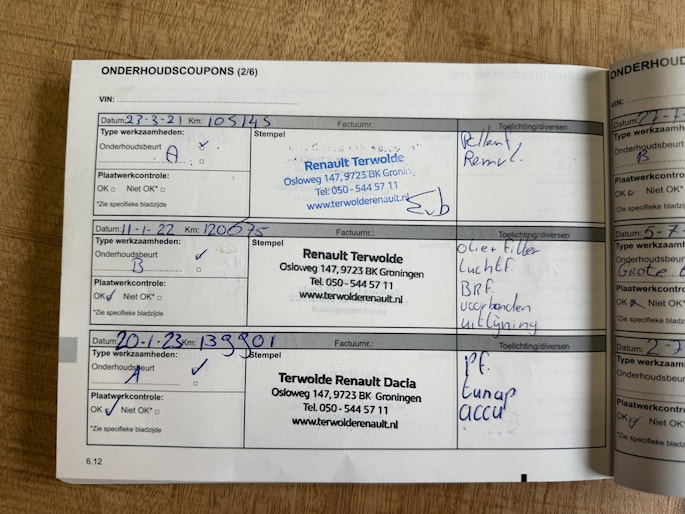 ONDERHOUDSCOUPONS (2/6)
VIN:
Datum: 23-3-21 Km: 105145 Factuurnr.: Toelichting/diversen
Type werkzaamheden: Stempel
Onderhoudsbeurt
A
Renault Terwolde
Osloweg 147, 9723 BK Gronin
Tel: 050 - 544 57 11
www.terwolderenault.nl
Pollenf
Remvl.
Plaatwerkcontrole:
OK Niet OK*
*Zie specifieke bladzijde
Datum: 11-1-22 Km: 120675 Factuurnr.: Toelichting/diversen
Type werkzaamheden: Stempel
Onderhoudsbeurt
B
Renault Terwolde
Osloweg 147, 9723 BK Groningen
Tel. 050 - 544 57 11
www.terwolderenault.nl
olie+filter
luchtf.
BRF.
voorbanden
uitlijning
Plaatwerkcontrole:
OK Niet OK*
*Zie specifieke bladzijde
Datum: 20-1-23 Km: 139901 Factuurnr.: Toelichting/diversen
Type werkzaamheden: Stempel
Onderhoudsbeurt
A
Terwolde Renault Dacia
Osloweg 147, 9723 BK Groningen
Tel. 050 - 544 57 11
www.terwolderenault.nl
pf.
tunap
accu
Plaatwerkcontrole:
OK Niet OK*
*Zie specifieke bladzijde
6.12
ONDERHOUD
VIN:
Datum:
Type werkzaam
Onderhoudsbeurt
B
Plaatwerkcontro
OK Niet OK*
*Zie specifieke blad
Datum: 5-7-
Type werkzaam
Onderhoudsbeu
Grote
Plaatwerkcontr
OK Niet OK
*Zie specifieke bla
Datum: 2-7
Type werkzaa
Onderhoudsbe
Plaatwerkcont
OK Niet OK
*Zie specifieke b